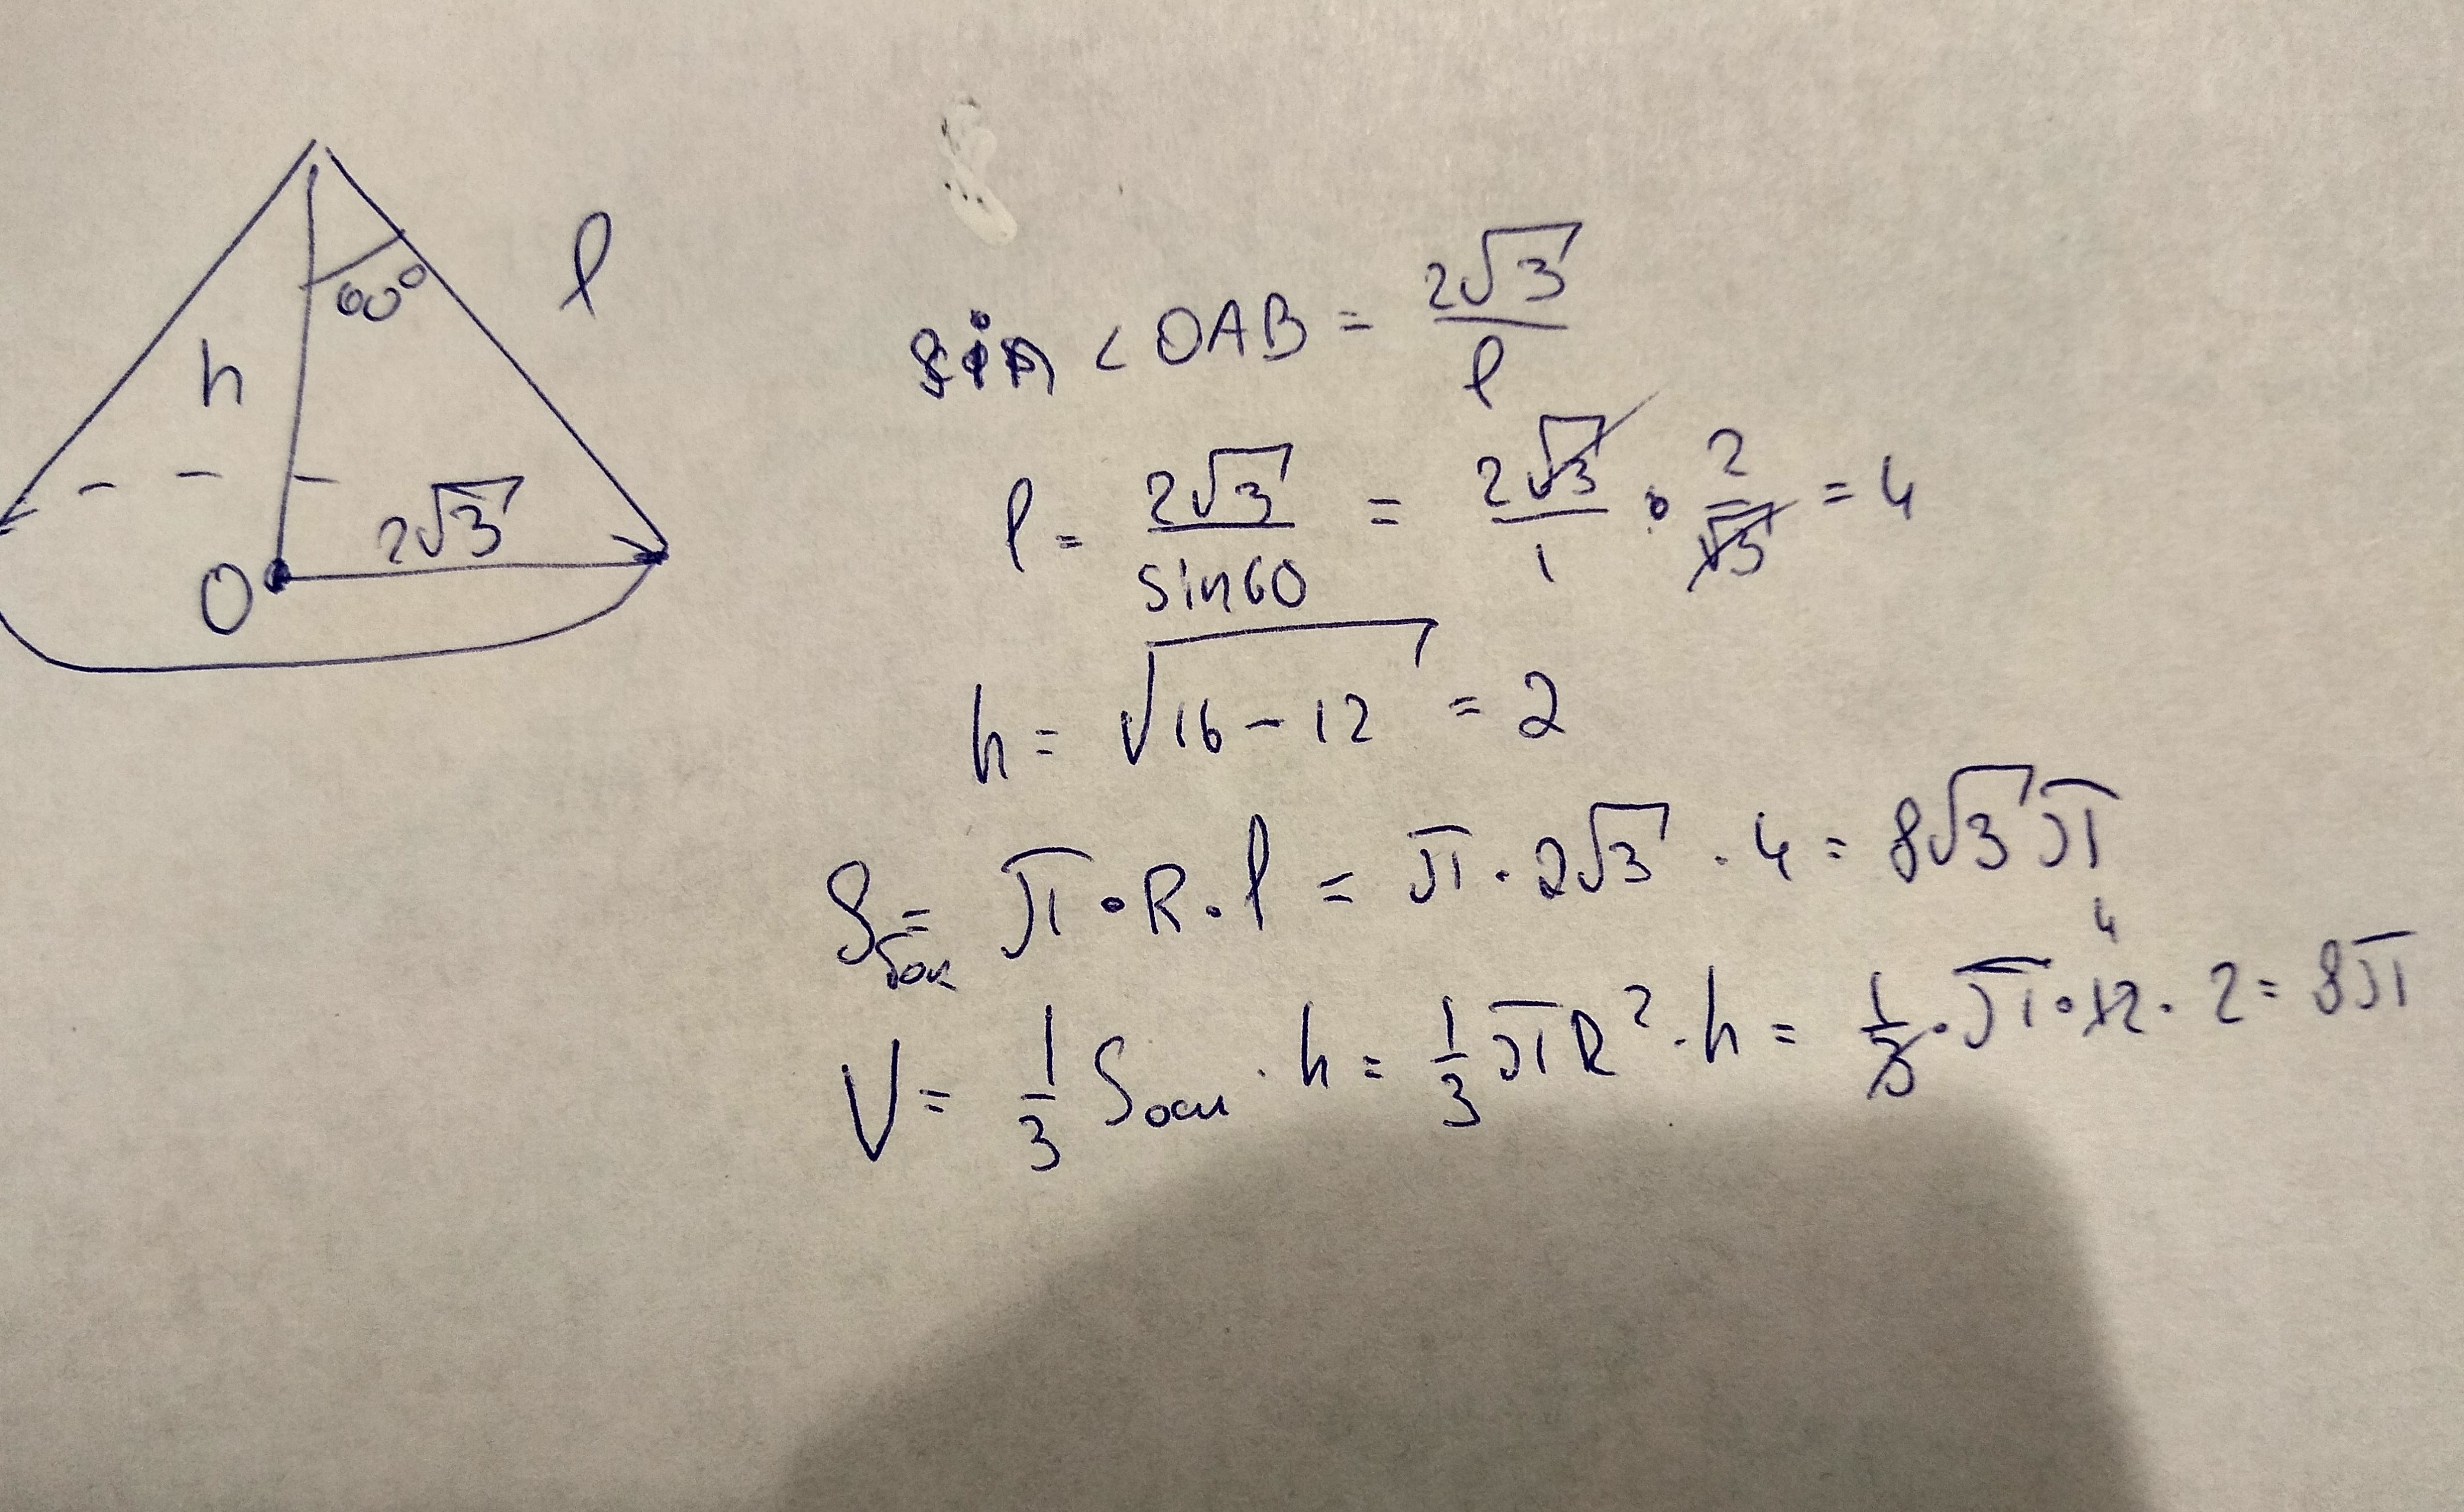 h
60°
l
2√3
O
sin < OAB = 2√3/l
l = 2√3/sin60 = 2√3/1 · 2/√3 = 4
h = √16-12 = 2
Sбок = π · R · l = π · 2√3 · 4 = 8√3π
4
V = 1/3 Sосн · h = 1/3 πR² · h = 1/3 · π · 12 · 2 = 8π